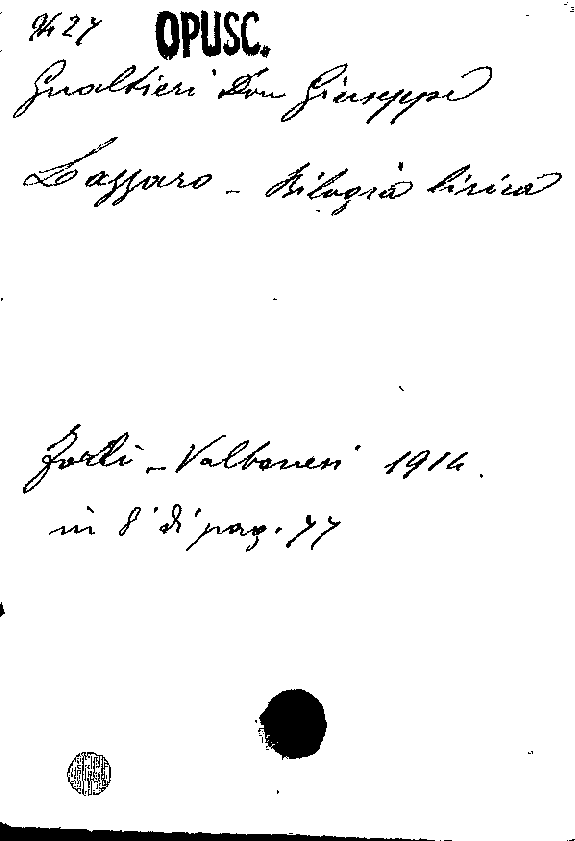 OPUSC.
Gualtieri Don Giuseppe
Lazzaro - Bilogia lirica
Forlì - Valbonesi 1914.
in 8° di pag. 77